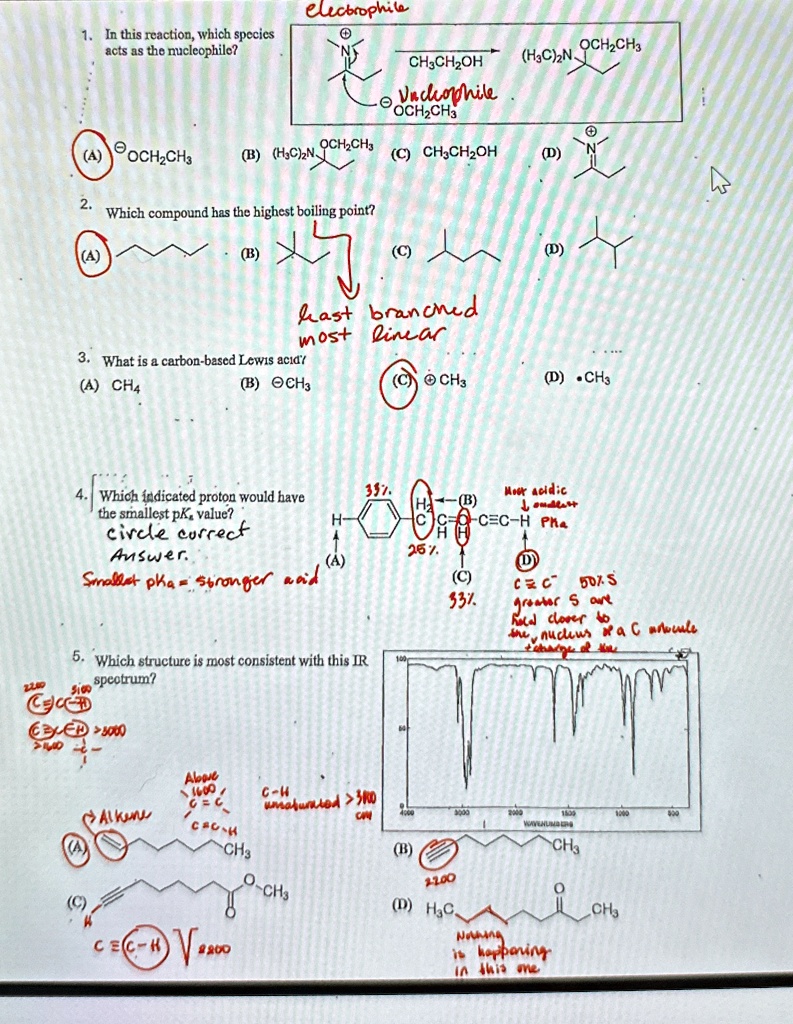 electrophile
1. In this reaction, which species
acts as the nucleophile?
⊕
N
CH₃CH₂OH
(H₃C)₂N OCH₂CH₃
Nucleophile
⊖
OCH₂CH₃
(A) ⊖OCH₂CH₃ (B) (H₃C)₂N OCH₂CH₃ (C) CH₃CH₂OH (D) ⊕ N
2. Which compound has the highest boiling point?
(A) (B) (C) (D)
least branched
most linear
3. What is a carbon-based Lewis acid?
(A) CH₄ (B) ⊖CH₃ (C) ⊕CH₃ (D) •CH₃
4. Which indicated proton would have
the smallest pKₐ value?
circle correct
Answer.
Smallest pka = stronger acid
33%
H₂ (B)
H C C=C-C≡C-H
H H
25%
(A)
(C)
33%
Most acidic
smallest
PKa
(D)
C≡C⁻ 50% S
greater S are
held closer to
the nucleus of a C molecule
5. Which structure is most consistent with this IR
spectrum?
2200 3100
C≡C-H
>3000
>1600
Above
1600
C=C
C=C-H
C-H
unsaturated >3100
cm
100
50
0
4000 3000 2000 1500 1000 500
WAVENUMBERS
Alkene
(A) CH₃
(B) CH₃
2200
(C) O CH₃
O
H
C≡C-H
2200
(D) H₃C O CH₃
Nothing
is happening
in this one